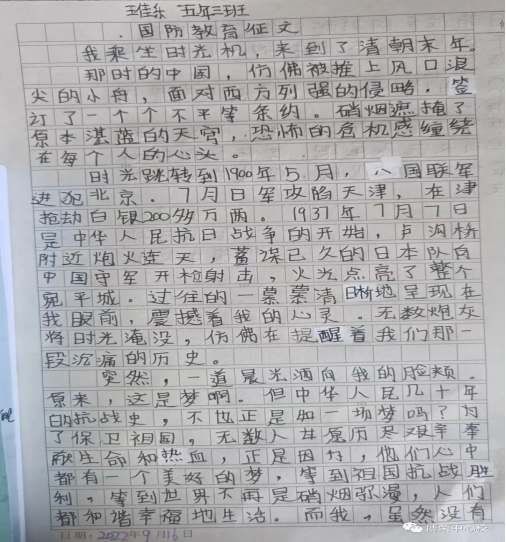 王佳乐 五年三班
国防教育征文
我乘坐时光机，来到了清朝末年。
那时的中国，仿佛被推上风口浪
尖的小舟，面对西方列强的侵略，签
订了一个个不平等条约。硝烟遮掩了
原本湛蓝的天空，恐怖的危机感缠绕
在每个人的心头。
时光跳转到1900年5月，八国联军
进犯北京。7月日军攻陷天津，在津
抢劫白银200多万两。1937年7月7日
是中华人民抗日战争的开始，卢沟桥
附近炮火连天，蓄谋已久的日本队向
中国守军开枪射击，火光点亮了整个
宛平城。过往的一幕幕清晰地呈现在
我眼前，震撼着我的心灵。无数炮灰
将时光淹没，仿佛在提醒着我们那一
段沉痛的历史。
突然，一道晨光洒向我的脸颊。
原来，这是梦啊。但中华人民几十年
的抗战史，不也正是如一场梦吗？为
了保卫祖国，无数人甘愿历尽艰辛奉
献生命和热血，正是因为，他们心中
都有一个美好的梦，等到祖国抗战胜
利，等到世界不再是硝烟弥漫，人们
都和谐幸福地生活。而我，虽然没有
日期：2022年9月16日